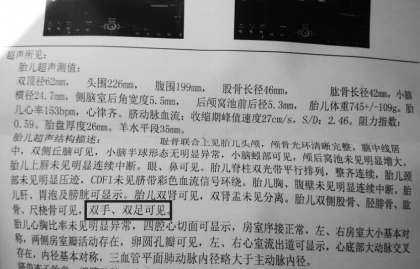 超声所见:
胎儿超声测值:
双顶径62mm, 头围226mm, 腹围199mm, 股骨长径46mm, 肱骨长径42mm, 小脑
横径24.7mm, 侧脑室后角宽度5.5mm, 后颅窝池前后径5.3mm, 胎儿体重745+/-109g, 胎
儿心率153bpm, 心律齐。脐动脉血流: 收缩期峰值速度27cm/s, S/D: 2.46, 阻力指数:
0.59。胎盘厚度26mm。羊水平段35mm。
胎儿超声结构描述: 耻骨联合上见胎儿头颅, 颅骨光环清晰完整。脑中线居
中, 双侧丘脑可见, 小脑半球形态无明显异常, 小脑蚓部可见, 颅后窝池未见明显增大。
胎儿上唇未见明显连续中断。眼、鼻可见。胎儿脊柱双光带平行排列, 整齐连续, 胎儿颈
部未见明显压迹, CDFI未见脐带彩色血流信号环绕。胎儿胸、腹壁未见明显连续中断。胎
儿肝、胃泡及膀胱可显示。胎儿双肾可见, 双肾盂未见分离。胎儿双侧股骨、胫腓骨、肱
骨、尺桡骨可见, 双手、双足可见。
胎儿心胸比率未见明显异常, 四腔心切面可显示, 房室连接正常, 左、右房室大小基本对
称, 两侧房室瓣活动存在, 卵圆孔瓣可见, 左、右心室流出道可显示, 心底部大动脉交叉
存在, 内径基本对称, 三血管平面肺动脉内径略大于主动脉内径。